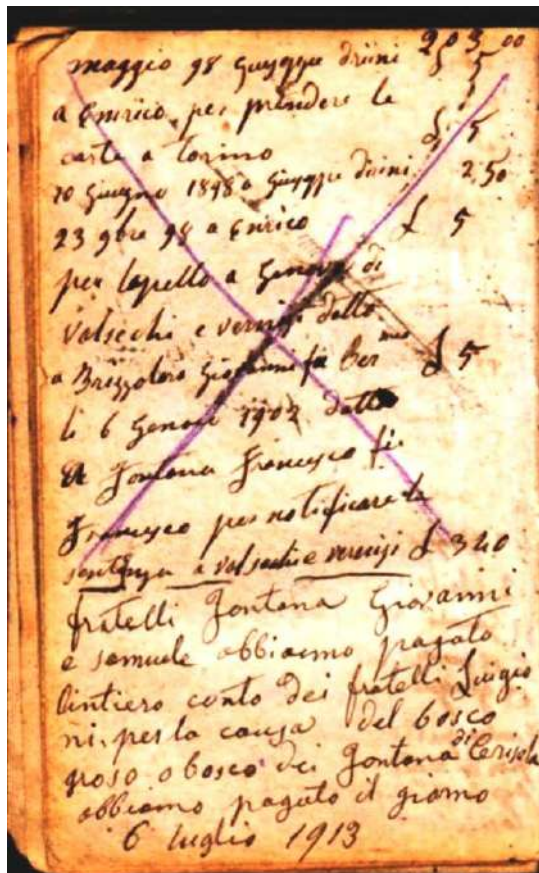 203 00
maggio 98 Giuseppe dirini £ 5
a Enrico per prendere le
carte a torino £ 5
10 Giugno 1898 a Giuseppe dirini 2,50
23 9bre 98 a Enrico £ 5
per lapello a Genova di
Valsechi e vernifi datto
a Brizzolara Giovanni fu Ber £ 5
li 6 Genaio 1902 datto
a Fontana Francesco fu
Francesco per notificare la
sentenza a valsechi e £ 340
fratelli Fontana Giovanni
e Samuele abbiamo pagato
lintiero conto dei fratelli Luigio
ni, per la causa del bosco
groso o bosco dei Fontana di Cerisola
abbiamo pagato il giorno
6 luglio 1913